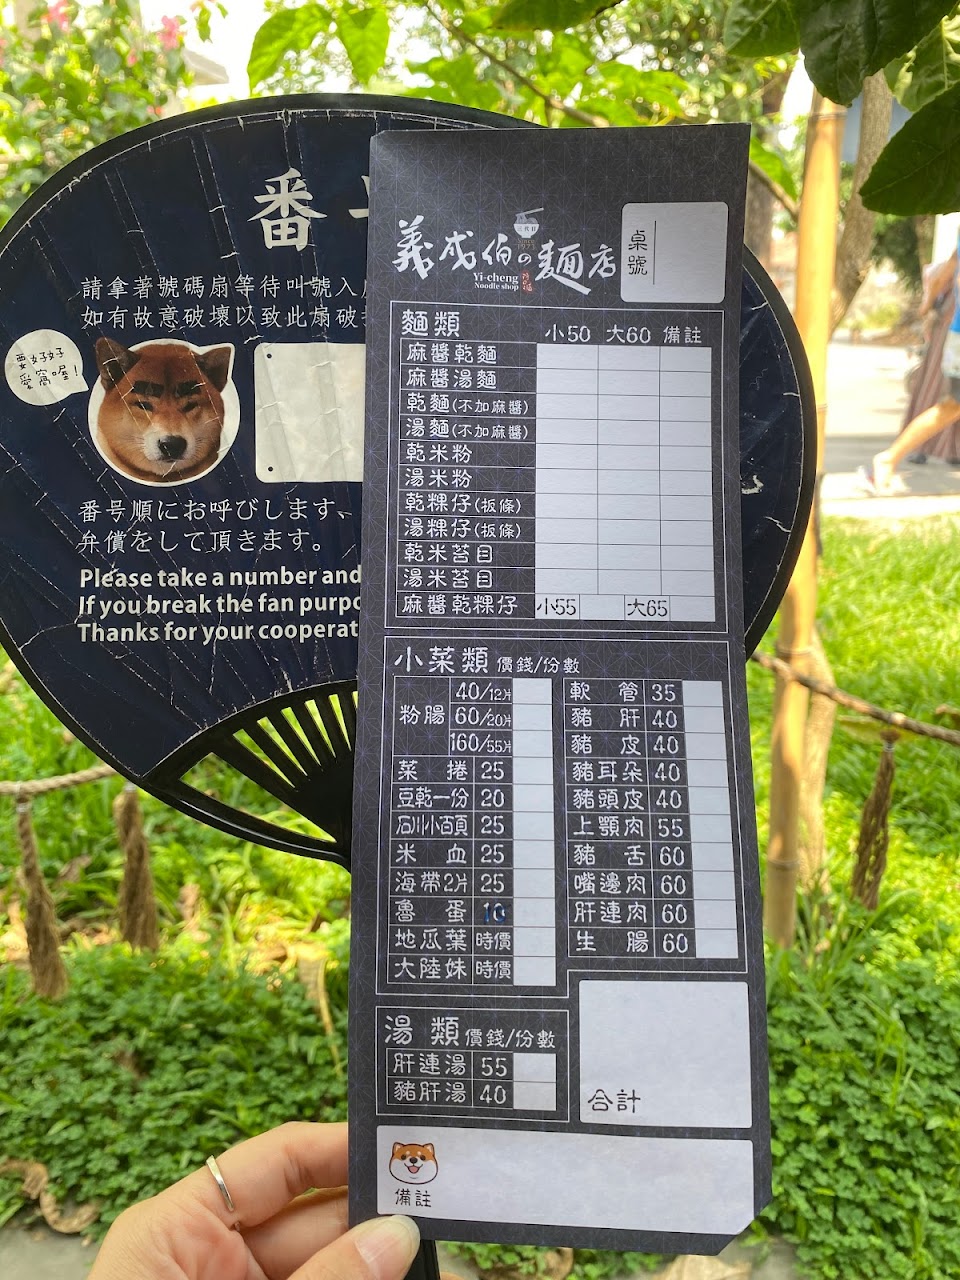 番号
請拿著號碼扇等待叫號入
如有故意破壞以致此扇破
要好好
愛窩喔!
番号順にお呼びします、
弁償をして頂きます。
Please take a number and
If you break the fan purpo
Thanks for your cooperat
義成伯の麵店
三代目
Since
1973
Yi-cheng
Noodle shop
桌號
麵類 小50 大60 備註
麻醬乾麵
麻醬湯麵
乾麵(不加麻醬)
湯麵(不加麻醬)
乾米粉
湯米粉
乾粿仔(板條)
湯粿仔(板條)
乾米苔目
湯米苔目
麻醬乾粿仔 小55 大65
小菜類 價錢/份數
粉腸 40/12片
60/20片
160/55片
菜捲 25
豆乾一份 20
石川小百頁 25
米血 25
海帶2片 25
魯蛋 10
地瓜葉 時價
大陸妹 時價
軟管 35
豬肝 40
豬皮 40
豬耳朵 40
豬頭皮 40
上顎肉 55
豬舌 60
嘴邊肉 60
肝連肉 60
生腸 60
湯類 價錢/份數
肝連湯 55
豬肝湯 40
合計
備註